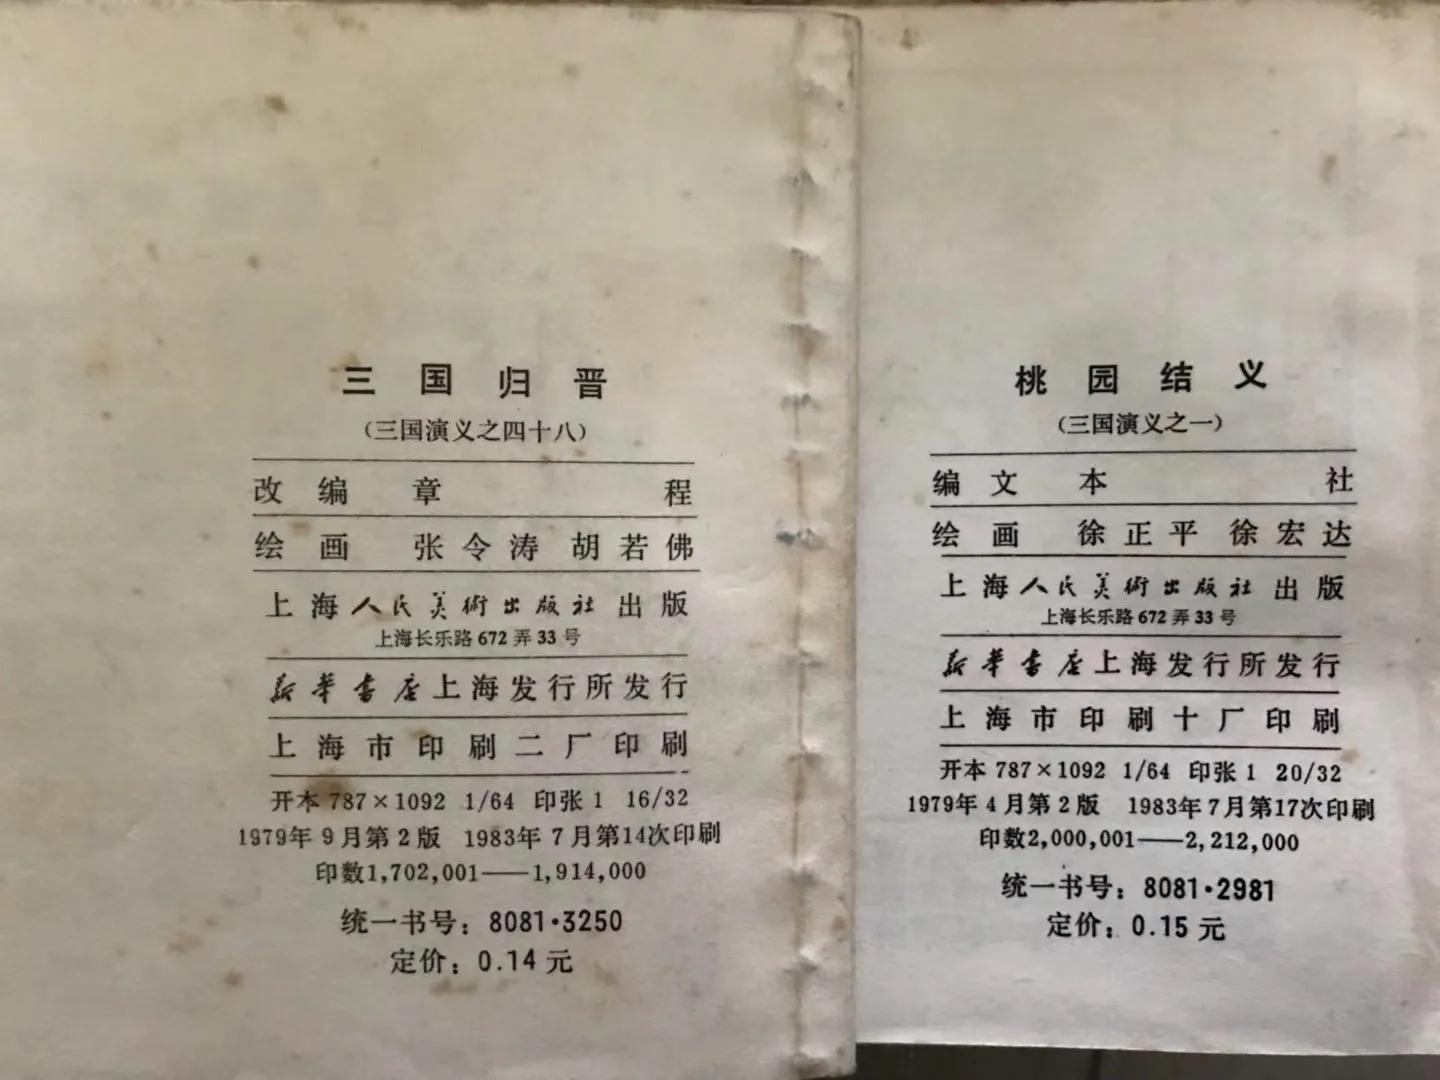 三国归晋
(三国演义之四十八)
改编 章程
绘画 张令涛 胡若佛
上海人民美術出版社出版
上海长乐路672弄33号
新华书店上海发行所发行
上海市印刷二厂印刷
开本 787×1092 1/64 印张 1 16/32
1979年9月第2版 1983年7月第14次印刷
印数1,702,001——1,914,000
统一书号：8081·3250
定价：0.14元
桃园结义
(三国演义之一)
编文 本社
绘画 徐正平 徐宏达
上海人民美術出版社出版
上海长乐路672弄33号
新华书店上海发行所发行
上海市印刷十厂印刷
开本 787×1092 1/64 印张 1 20/32
1979年4月第2版 1983年7月第17次印刷
印数2,000,001——2,212,000
统一书号：8081·2981
定价：0.15元